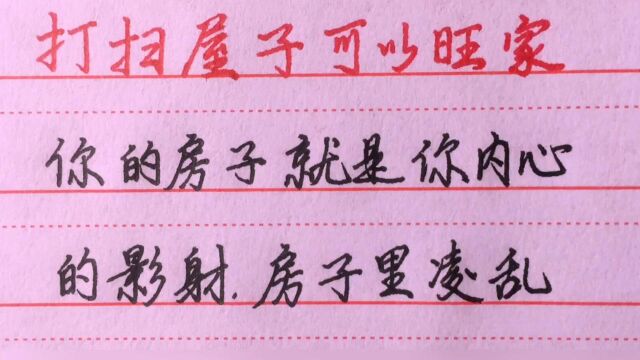 打扫屋子可以旺家
你的房子就是你内心
的影射.房子里凌乱